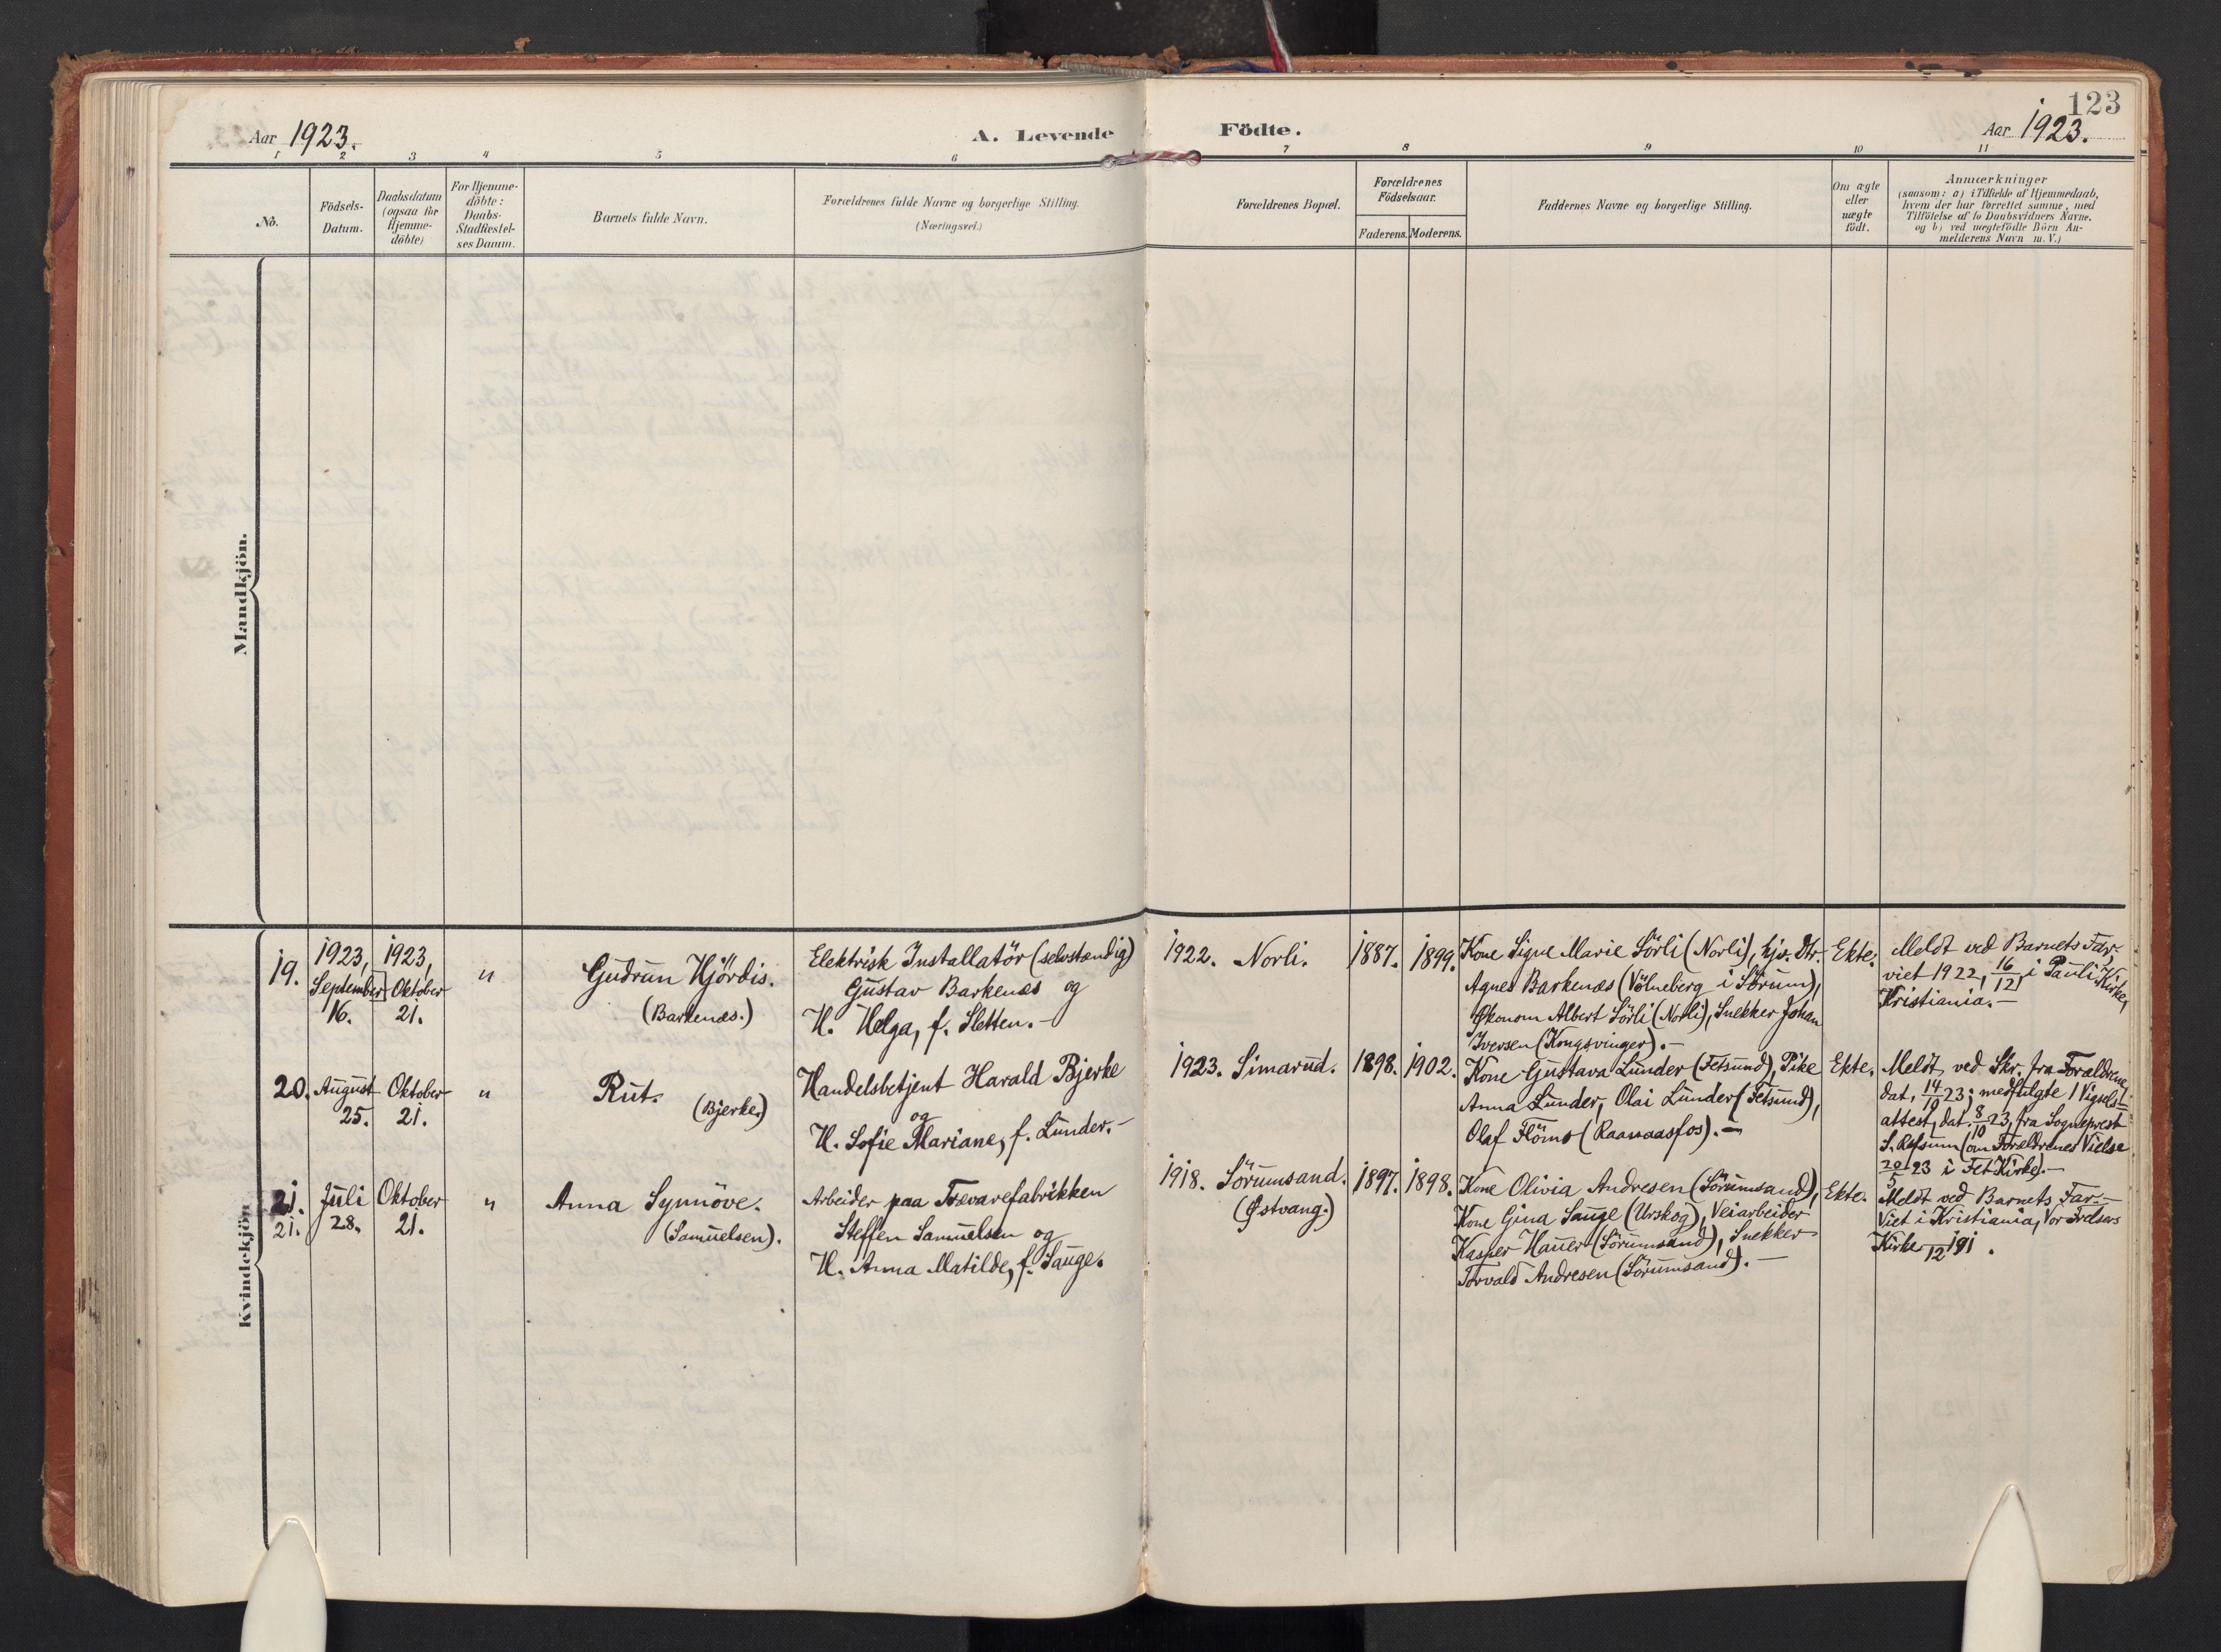 123
Aar 1923.
A. Levende Födte.
Aar 1923.
1 2 3 4 5 6 7 8 9 10 11
No.
Födsels-
Datum.
Daabsdatum
(ogsaa for
Hjemme-
döbte)
For Hjemme-
döbte:
Daabs-
Stadfæstel-
ses Datum.
Barnets fulde Navn.
Forældrenes fulde Navne og borgerlige Stilling.
(Næringsvei.)
Forældrenes Bopæl.
Forældrenes
Födselsaar.
Faderens. Moderens.
Faddernes Navne og borgerlige Stilling.
Om ægte
eller
uægte
födt.
Anmærkninger
(saasom: a) i Tilfælde af Hjemmedaab,
hvem der har forrettet samme, med
Tilföielse af to Daabsvidners Navne.
og b) ved uægtefödte Börn An-
melderens Navn m. V.)
Mandkjön.
Kvindekjön
19.
1923,
September
16.
1923,
Oktober
21.
"
Gudrun Hjördis.
(Barkenæs.)
Elektrisk Installatör (selvstændig)
Gustav Barkenæs og
H. Helga, f. Sletten.-
1922. Norli.
1887.
1899.
Kone Signe Marie Sörli (Norli), hjv. Dtr.
Agnes Barkenæs (Völneberg i Sörum),
Økonom Albert Sörli (Norli), Snekker Johan
Iversen (Kongsvinger).-
Ekte.
Meldt ved Barnets Far,
viet 1922, 16/12 i Pauli Kirke,
Kristiania.-
20.
August
25.
Oktober
21.
"
Rut.
(Bjerke)
Handelsbetjent Harald Bjerke
og
H. Sofie Mariane, f. Lunder.-
1923. Simarud.
1898.
1902.
Kone Gustava Lunder (Fetsund), Pike
Anna Lunder, Olai Lunder (Fetsund),
Olaf Höms (Raanaasfos).-
Ekte.
Meldt ved Skr. fra Forældrene,
dat. 14/10 23; medfulgte 1 Vigsels-
attest, dat. 8/10 23, fra Sogneprest
S. Refsum (om Forældrenes Vielse
20/5 23 i Fet Kirke).-
21.
21.
Juli
28.
Oktober
21.
"
Anna Synnöve.
(Samuelsen).
Arbeider paa Trævarefabrikken
Steffen Samuelsen og
H. Anna Matilde, f. Sauge.
1918. Sörumsand.
(Østvang.)
1897.
1898.
Kone Olivia Andresen (Sörumsand),
Kone Gina Sauge (Urskog), Veiarbeider
Kasper Hauer (Sörumsand), Snekker
Torvald Andresen (Sörumsand).-
Ekte.
Meldt ved Barnets Far.-
Viet i Kristiania, Vor Frelsers
Kirke